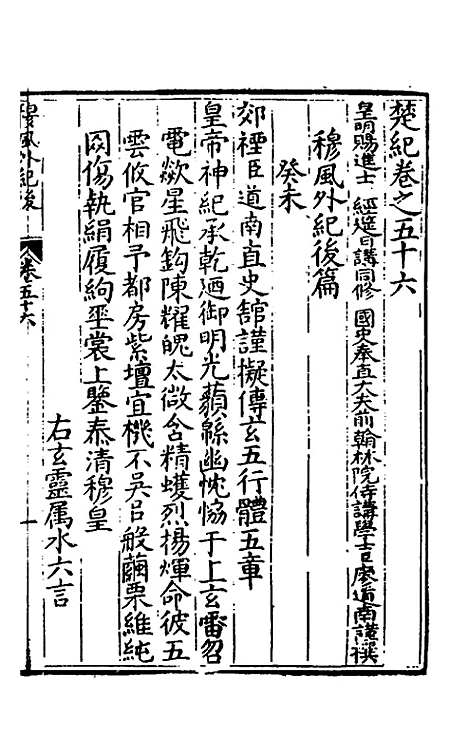 楚紀卷之五十六
皇明賜進士 經筵日講同修 國史奉直大夫前翰林院侍講學士臣廖道南謹撰
穆風外紀後篇
癸未
郊禋臣道南直史館謹擬傳玄五行體五章
皇帝神紀承乾廼御明光蘋緜幽忱恊于上玄雷召
電歘星飛鈎陳耀魄太微含精蠖烈揚煇命彼五
雲攸官相予都房紫壇宜機不吳吕般繭栗維純
罔傷執絹履絇㘴裳上鑒泰清穆皇
右玄靈属水六言
穆風外紀後
卷五十六
一